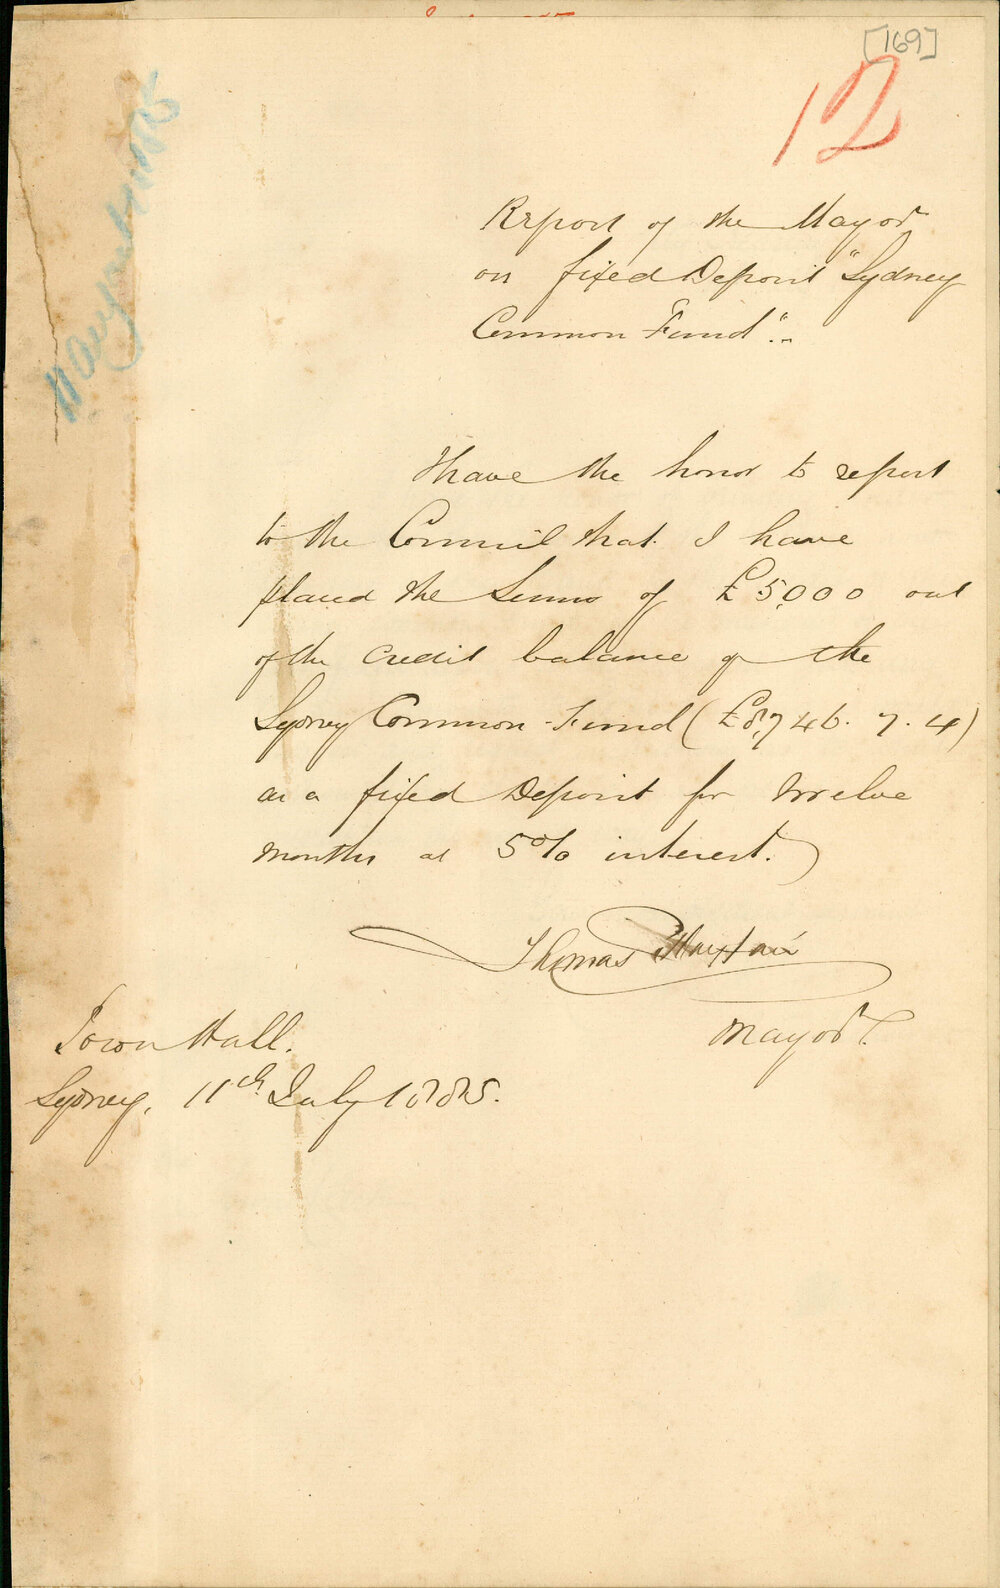 [169]
12
Report of the Mayor
on fixed Deposit "Sydney
Common Fund".
I have the honor to report
to the Council that I have
placed the Sum of £5,000 out
of the credit balance of the
Sydney Common Fund (£8,746. 7. 4)
as a fixed Deposit for twelve
months at 5% interest.
Thomas Playfair
Mayor.
Town Hall.
Sydney, 11th July 1885.